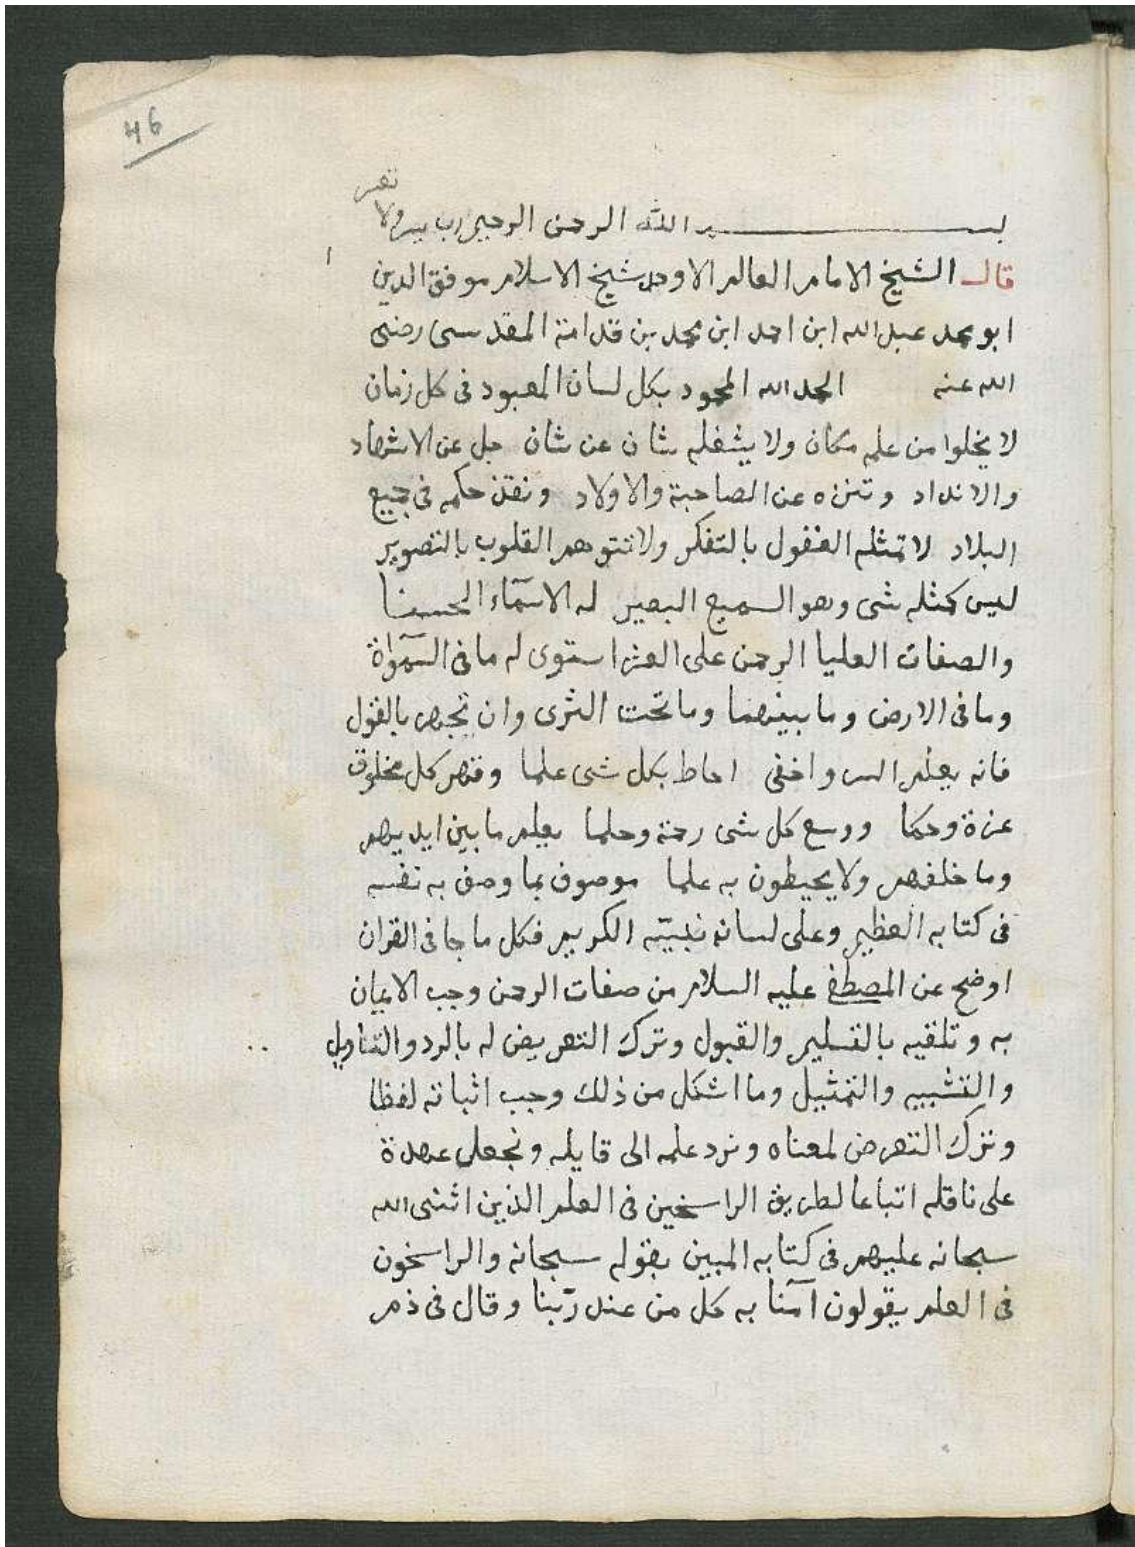 46
بسم الله الرحمن الرحيم رب يسر ولا تعسر
قال الشيخ الامام العالم الاوحد شيخ الاسلام موفق الدين
ابو محمد عبد الله ابن احمد ابن محمد بن قدامة المقدسى رضى
الله عنه الحمد الله المحمود بكل لسان المعبود فى كل زمان
لا يخلوا من علمه مكان ولا يشغله شان عن شان جل عن الاشهاد
والانداد وتنزه عن الصاحبة والاولاد ونفذ حكمه فى جميع
البلاد لا تمثله العقول بالتفكر ولا تتوهم القلوب بالتصوير
ليس كمثله شى وهو السميع البصير له الاسمآء الحسنا
والصفات العليا الرحمن على العرش استوى له ما فى السمٓواة
وما فى الارض وما بينهما وما تحت الثرى وان تجهر بالقول
فانه يعلم السر واخفى احاط بكل شى علما وقهر كل مخلوق
عزة وحكما ووسع كل شى رحمة وحلما يعلم ما بين ايديهم
وما خلفهم ولا يحيطون به علما موصوف بما وصف به نفسه
فى كتابه العظيم وعلى لسانه نبيّه الكريم فكل ما جا فى القران
اوضح عن المصطفى عليه السلام من صفات الرحمن وجب الايمان
به وتلقيه بالتسليم والقبول وترك التعريض له بالرد والتاويل
والتشبيه والتمثيل وما اشكل من ذلك وجب اثباته لفظا
ونترك التعرض لمعناه ونرد علمه الى قايله ونجعل عهدة
على ناقله اتباعا لطريق الراسخين فى العلم الذين اثنى الله
سبحانه عليهم فى كتابه المبين بقوله سبحانه والراسخون
فى العلم يقولون آمنا به كل من عند ربّنا وقال فى ذم